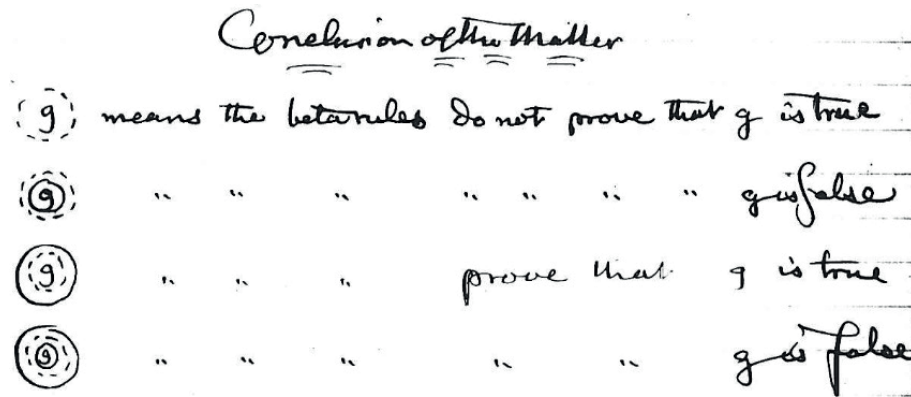 Conclusion of the Matter
g means the beta rules do not prove that g is true
g " " " " " " " g is false
g " " " prove that g is true
g " " " " " g is false